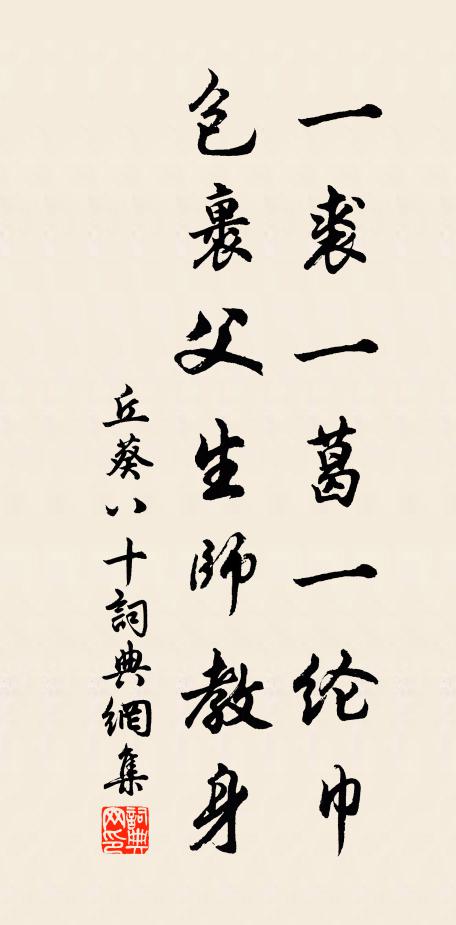 一裘一葛一纶巾
包裹父生師教身
丘葵八十詞典網集
詞典网印